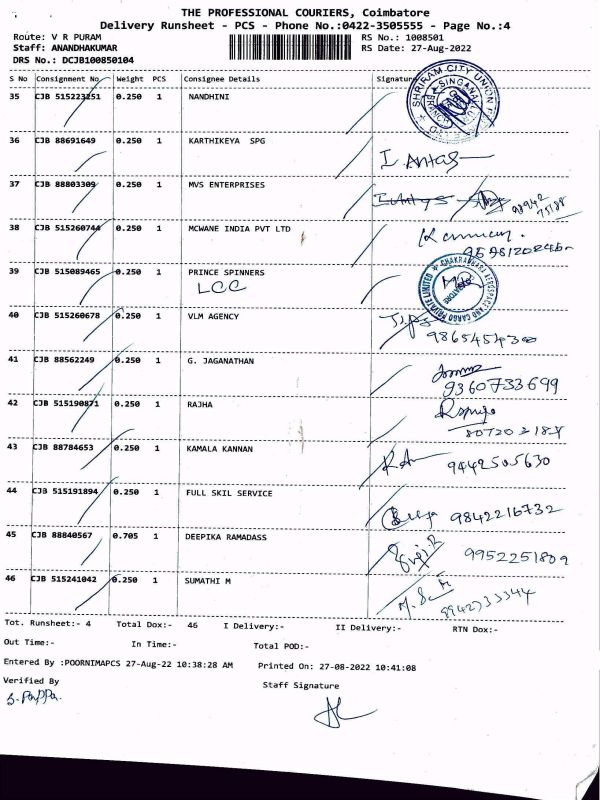 THE PROFESSIONAL COURIERS, Coimbatore
Delivery Runsheet - PCS - Phone No.:0422-3505555 - Page No.:4
Route: V R PURAM RS No.: 1008501
Staff: ANANDHAKUMAR RS Date: 27-Aug-2022
DRS No.: DCJB100850104
S No Consignment No Weight PCS Consignee Details Signature
35 CJB 515223251 0.250 1 NANDHINI
SHRIRAM CITY UNION
36 CJB 88691649 0.250 1 KARTHIKEYA SPG
37 CJB 88803309 0.250 1 MVS ENTERPRISES
38 CJB 515260744 0.250 1 MCWANE INDIA PVT LTD
39 CJB 515089465 0.250 1 PRINCE SPINNERS
LCC
CHAKRADHARA AEROSPACE AND CARGO PRIVATE LIMITED
40 CJB 515260678 0.250 1 VLM AGENCY
9865454300
41 CJB 88562249 0.250 1 G. JAGANATHAN
9360733699
42 CJB 515190871 0.250 1 RAJHA
43 CJB 88784653 0.250 1 KAMALA KANNAN
9442505630
44 CJB 515191894 0.250 1 FULL SKIL SERVICE
9842216732
45 CJB 88840567 0.705 1 DEEPIKA RAMADASS
9952251809
46 CJB 515241042 0.250 1 SUMATHI M
9942733344
Tot. Runsheet:- 4 Total Dox:- 46 I Delivery:- II Delivery:- RTN Dox:-
Out Time:- In Time:- Total POD:-
Entered By :POORNIMAPCS 27-Aug-22 10:38:28 AM Printed On: 27-08-2022 10:41:08
Verified By Staff Signature
S. Pappa.